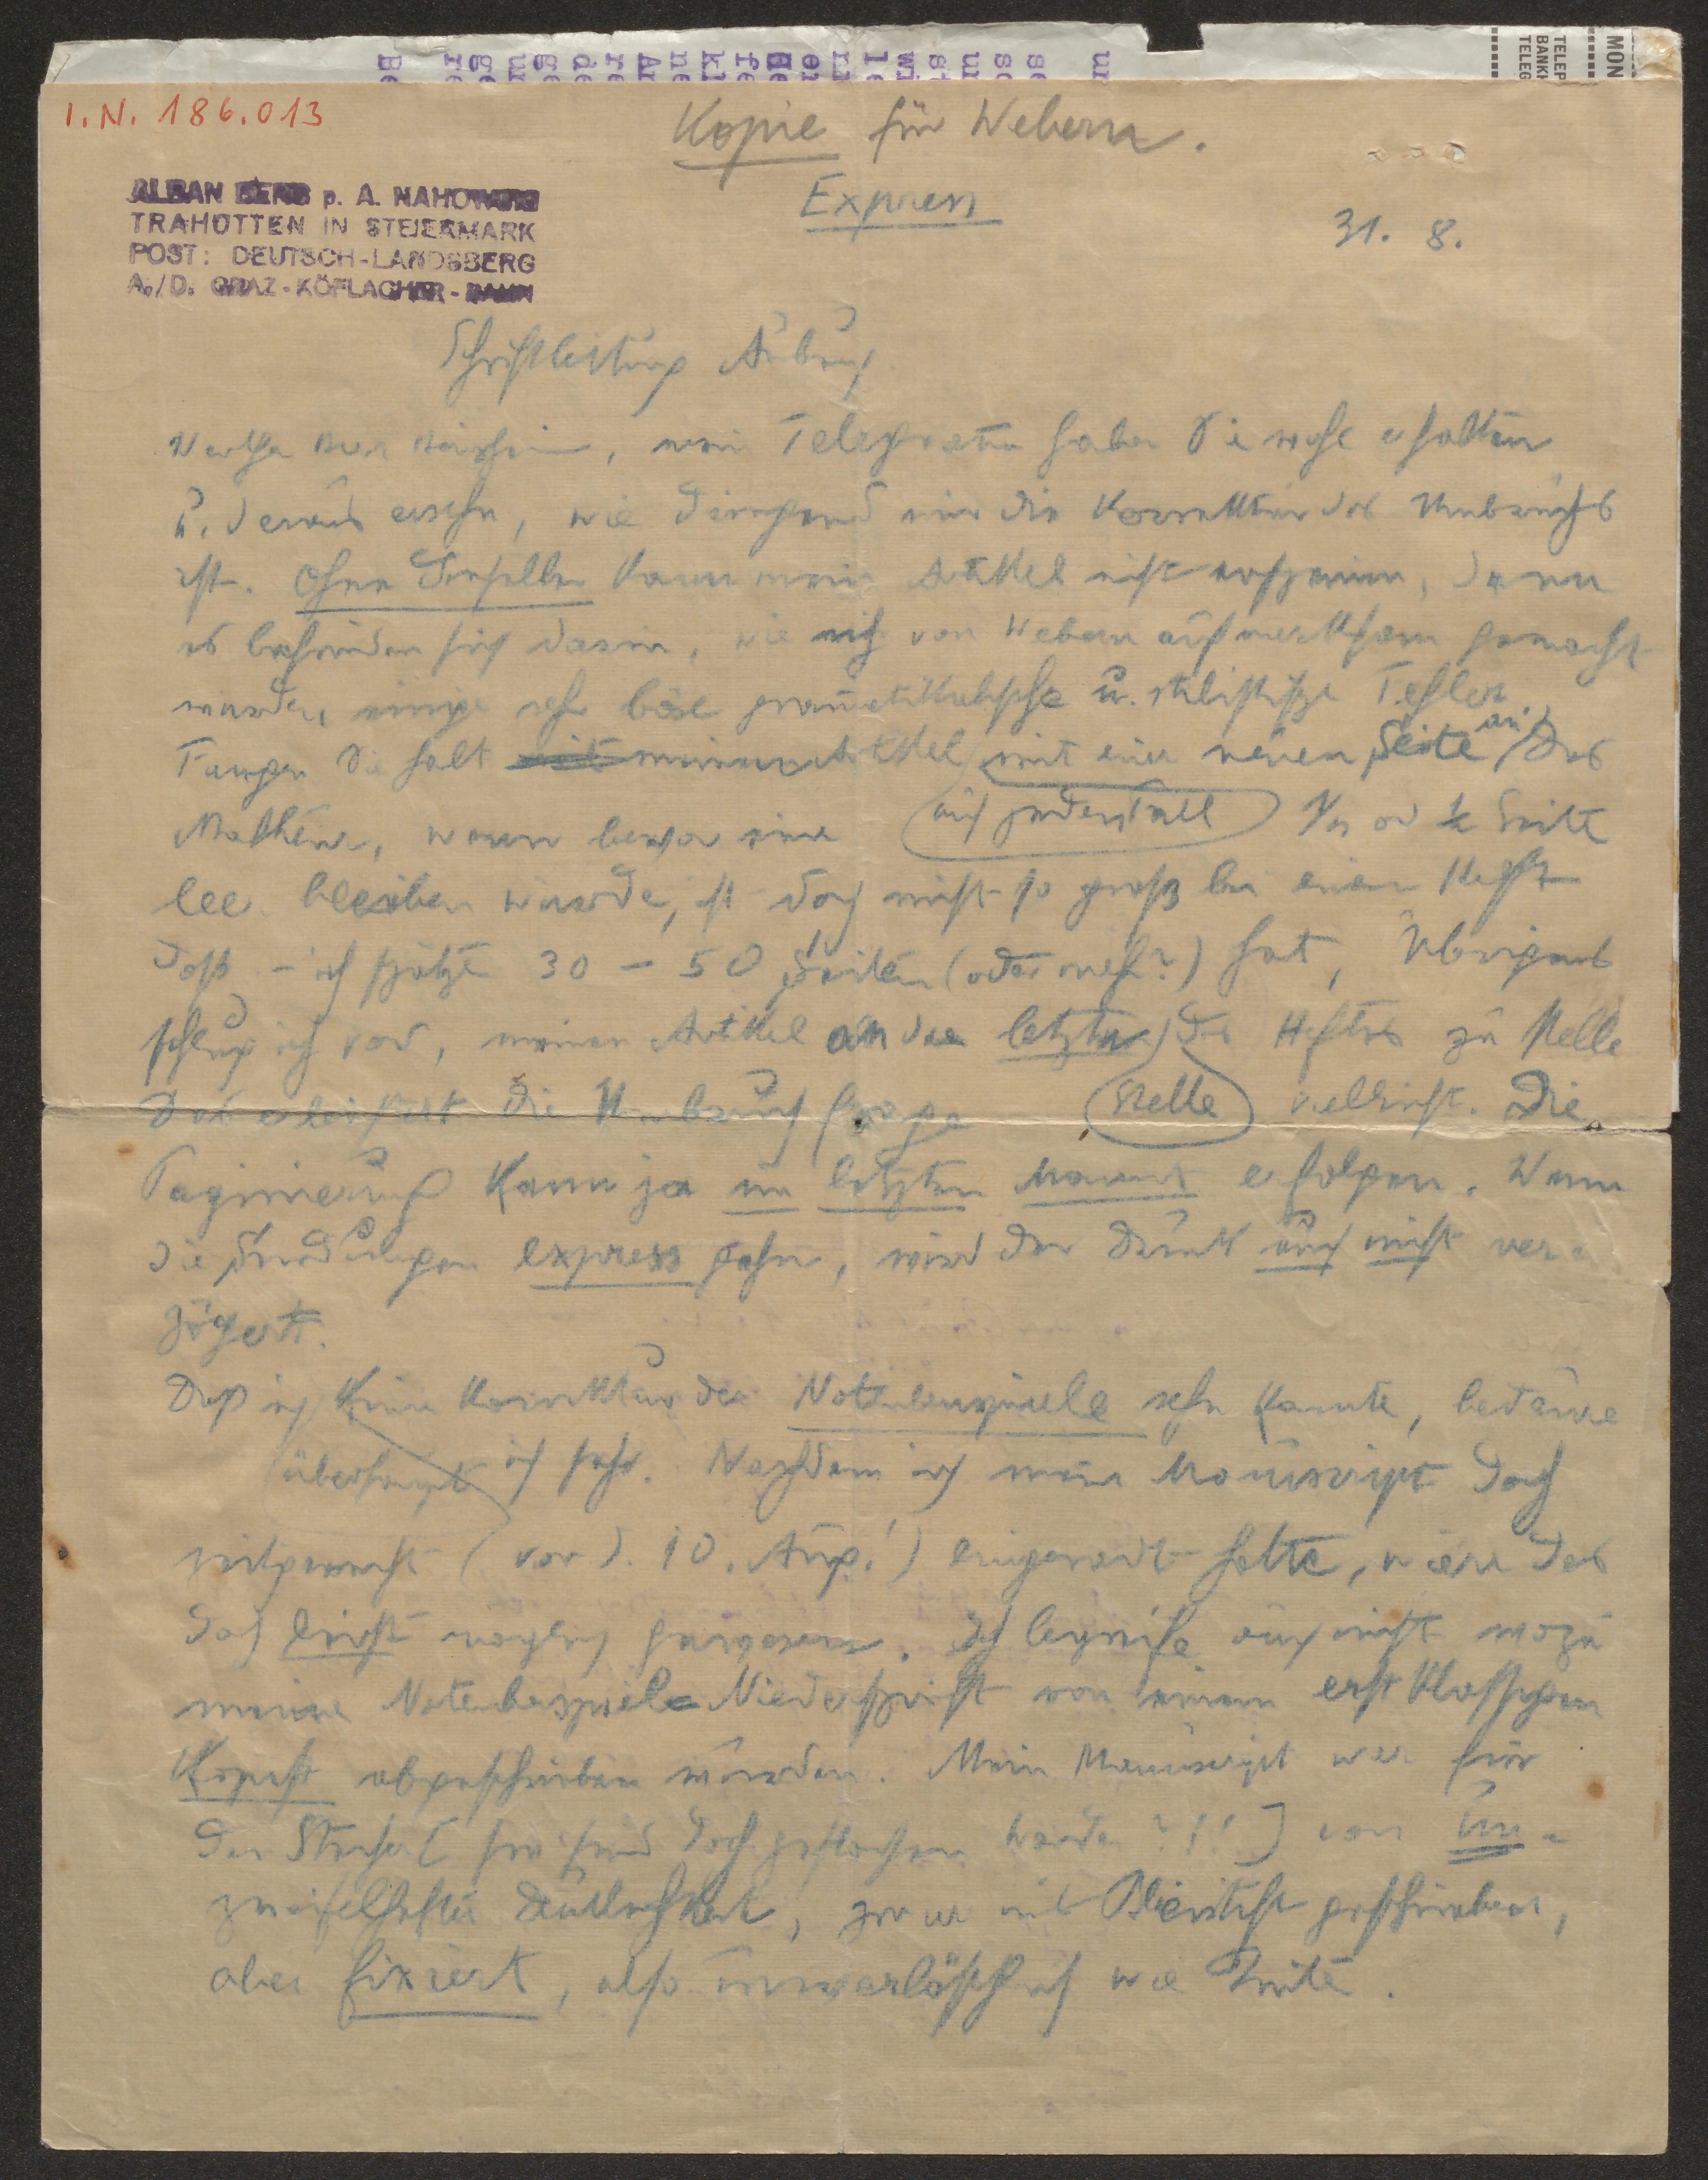 I.N. 186.013
Kopie für Webern.
ALBAN BERG p. A. NAHOWSKI
TRAHÜTTEN IN STEIERMARK
POST: DEUTSCH-LANDSBERG
A./D. GRAZ-KÖFLACHER-BAHN
Express
31. 8.
Schriftleitung Anbruch
Werther Herr, mein Telegramm haben Sie wohl erhalten
u. daraus ersehn, wie dringend mir die Korrektur des Umbruchs
ist. Ohne dieselbe kann mein Artikel nicht erscheinen, denn
es befinden sich darin, wie ich von Webern aufmerksam gemacht
wurde, einige sehr böse grammatikalische u. stilistische Fehler
Fangen Sie halt mit meinem Artikel mit einer neuen Seite an! Das
Malheur, wenn bevor eine auf jeden Fall 1/3 od ½ Seite
leer bleiben würde, ist doch nicht so groß bei einem Heft
das – ich schätze 30 – 50 Seiten (oder mehr?) hat, Übrigens
schlug ich vor, meinen Artikel an die letzte Stelle des Heftes zu stellen
Das erleichtert die Umbruchfrage vielleicht. Die
Paginierung kann ja im letzten Moment erfolgen. Wenn
die Sendungen express gehn, wird der Druck auch nicht ver-
zögert.
Daß ich keine Korrektur der Notenbeispiele sehn konnte, bedaure
überhaupt ich sehr. Nachdem ich mein Manuscript doch
zeitgerecht (vor d. 10. Aug.!) eingesandt hatte, wäre das
doch leicht möglich gewesen. Ich begreife auch nicht wozu
meine Notenbeispiele Niederschrift von einem erstklassigen
Kopist abgeschrieben wurden. Mein Manuscript war für
den Stecher [sie sind doch gestochen worden?!!] von un-
zweifelhafter Deutlichkeit, zwar mit Bleistift geschrieben,
aber fixiert, also unverlöschlich wie Tinte.